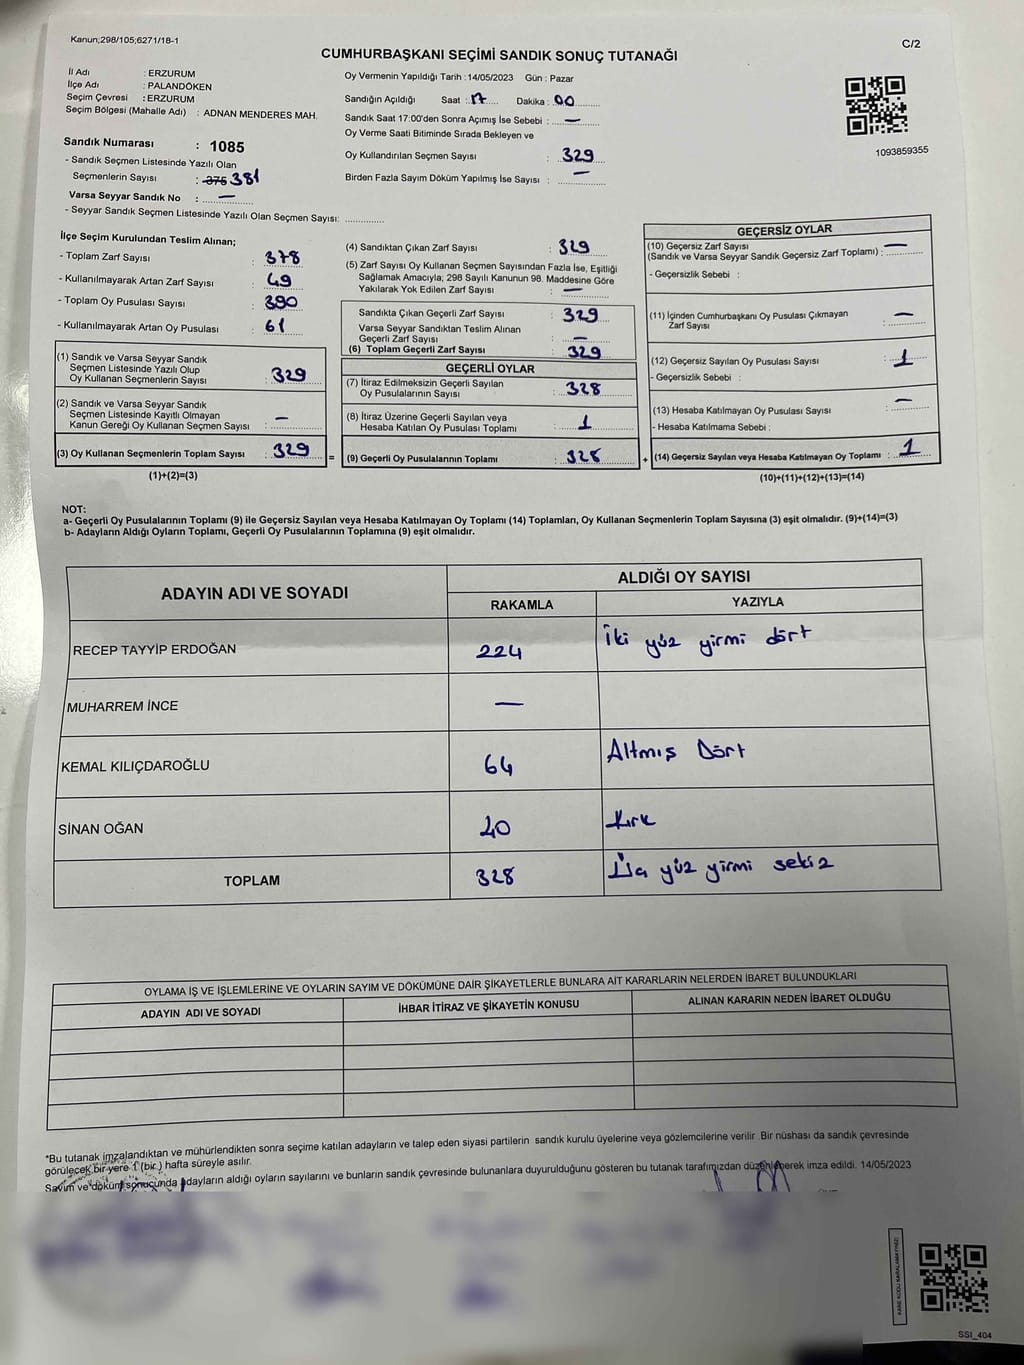 Kanun;298/105;6271/18-1
C/2
CUMHURBAŞKANI SEÇİMİ SANDIK SONUÇ TUTANAĞI
İl Adı : ERZURUM
İlçe Adı : PALANDÖKEN
Seçim Çevresi : ERZURUM
Seçim Bölgesi (Mahalle Adı) : ADNAN MENDERES MAH.
Sandık Numarası : 1085
- Sandık Seçmen Listesinde Yazılı Olan
Seçmenlerin Sayısı : 375 381
Varsa Seyyar Sandık No : —
- Seyyar Sandık Seçmen Listesinde Yazılı Olan Seçmen Sayısı: ............
Oy Vermenin Yapıldığı Tarih : 14/05/2023 Gün : Pazar
Sandığın Açıldığı Saat : 17 Dakika : 00
Sandık Saat 17:00'den Sonra Açımış İse Sebebi : —
Oy Verme Saati Bitiminde Sırada Bekleyen ve
Oy Kullandırılan Seçmen Sayısı : 329
Birden Fazla Sayım Döküm Yapılmış İse Sayısı : —
1093859355
İlçe Seçim Kurulundan Teslim Alınan;
- Toplam Zarf Sayısı : 378
- Kullanılmayarak Artan Zarf Sayısı : 49
- Toplam Oy Pusulası Sayısı : 390
- Kullanılmayarak Artan Oy Pusulası : 61
(1) Sandık ve Varsa Seyyar Sandık
Seçmen Listesinde Yazılı Olup
Oy Kullanan Seçmenlerin Sayısı : 329
(2) Sandık ve Varsa Seyyar Sandık
Seçmen Listesinde Kayıtlı Olmayan
Kanun Gereği Oy Kullanan Seçmen Sayısı : —
(3) Oy Kullanan Seçmenlerin Toplam Sayısı : 329 =
(1)+(2)=(3)
(4) Sandıktan Çıkan Zarf Sayısı : 329
(5) Zarf Sayısı Oy Kullanan Seçmen Sayısından Fazla İse, Eşitliği
Sağlamak Amacıyla; 298 Sayılı Kanunun 98. Maddesine Göre
Yakılarak Yok Edilen Zarf Sayısı : —
Sandıkta Çıkan Geçerli Zarf Sayısı : 329
Varsa Seyyar Sandıktan Teslim Alınan
Geçerli Zarf Sayısı : —
(6) Toplam Geçerli Zarf Sayısı : 329
GEÇERLİ OYLAR
(7) İtiraz Edilmeksizin Geçerli Sayılan
Oy Pusulalarının Sayısı : 328
(8) İtiraz Üzerine Geçerli Sayılan veya
Hesaba Katılan Oy Pusulası Toplamı : 1
(9) Geçerli Oy Pusulalarının Toplamı : 328 +
GEÇERSİZ OYLAR
(10) Geçersiz Zarf Sayısı
(Sandık ve Varsa Seyyar Sandık Geçersiz Zarf Toplamı) : —
- Geçersizlik Sebebi :
(11) İçinden Cumhurbaşkanı Oy Pusulası Çıkmayan
Zarf Sayısı : —
(12) Geçersiz Sayılan Oy Pusulası Sayısı : 1
- Geçersizlik Sebebi :
(13) Hesaba Katılmayan Oy Pusulası Sayısı : —
- Hesaba Katılmama Sebebi :
(14) Geçersiz Sayılan veya Hesaba Katılmayan Oy Toplamı : 1
(10)+(11)+(12)+(13)=(14)
NOT:
a- Geçerli Oy Pusulalarının Toplamı (9) ile Geçersiz Sayılan veya Hesaba Katılmayan Oy Toplamı (14) Toplamları, Oy Kullanan Seçmenlerin Toplam Sayısına (3) eşit olmalıdır. (9)+(14)=(3)
b- Adayların Aldığı Oyların Toplamı, Geçerli Oy Pusulalarının Toplamına (9) eşit olmalıdır.
ADAYIN ADI VE SOYADI
ALDIĞI OY SAYISI
RAKAMLA YAZIYLA
RECEP TAYYİP ERDOĞAN 224 İki yüz yirmi dört
MUHARREM İNCE —
KEMAL KILIÇDAROĞLU 64 Altmış Dört
SİNAN OĞAN 40 Kırk
TOPLAM 328 Üç yüz yirmi sekiz
OYLAMA İŞ VE İŞLEMLERİNE VE OYLARIN SAYIM VE DÖKÜMÜNE DAİR ŞİKAYETLERLE BUNLARA AİT KARARLARIN NELERDEN İBARET BULUNDUKLARI
ADAYIN ADI VE SOYADI İHBAR İTİRAZ VE ŞİKAYETİN KONUSU ALINAN KARARIN NEDEN İBARET OLDUĞU
*Bu tutanak imzalandıktan ve mühürlendikten sonra seçime katılan adayların ve talep eden siyasi partilerin sandık kurulu üyelerine veya gözlemcilerine verilir .Bir nüshası da sandık çevresinde
görülecek bir yere 1 (bir ) hafta süreyle asılır.
Sayım ve döküm sonucunda adayların aldığı oyların sayılarını ve bunların sandık çevresinde bulunanlara duyurulduğunu gösteren bu tutanak tarafımızdan düzenlenerek imza edildi. 14/05/2023
KARE KODU KARALAMAYINIZ!
SSI_404